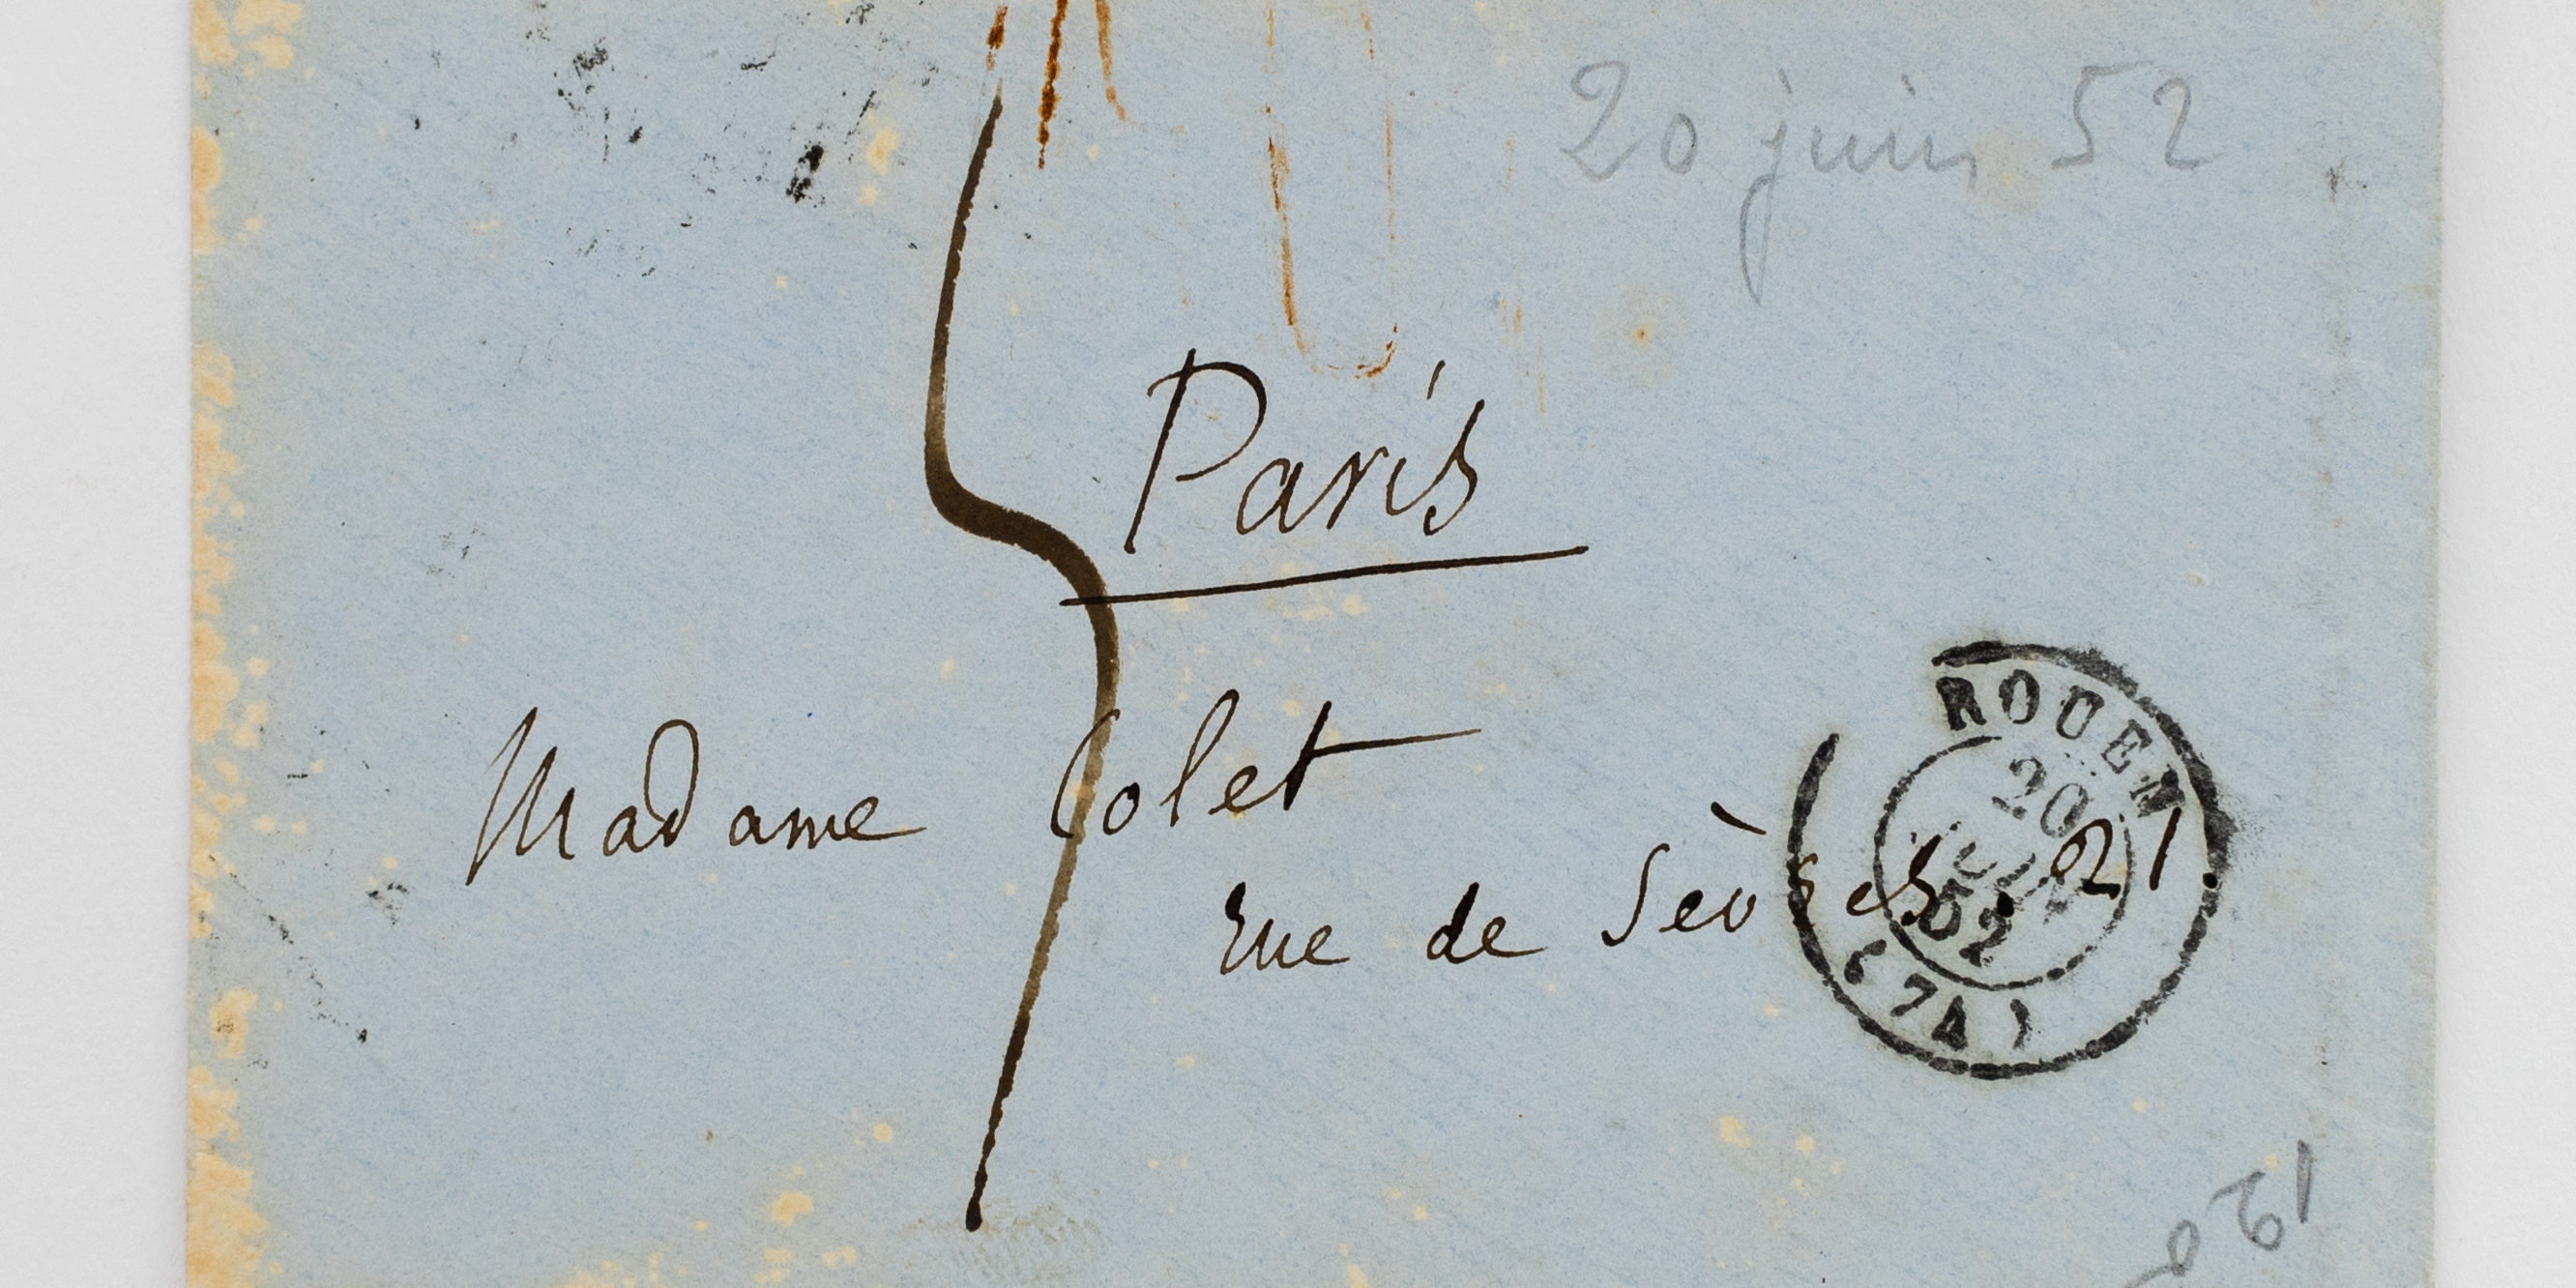 20 juin 52
Paris
Madame Colet
rue de Sèvres. 21.
ROUEN
20
JUIN
52
(74)